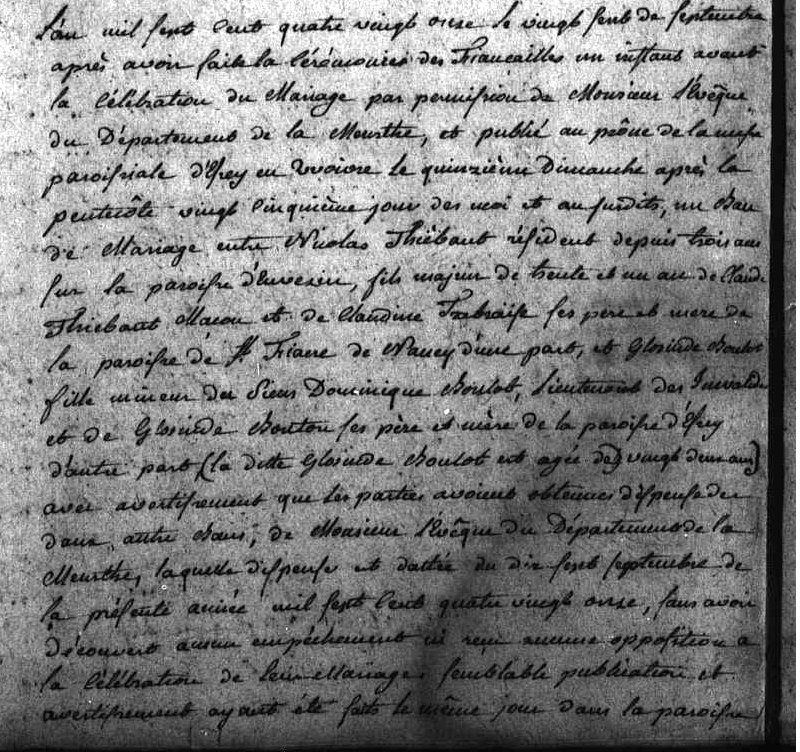 L'an mil sept cent quatre vingt onze le vingt sept de septembre
après avoir faite la cérémonies des Fiancailles un instant avant
la célébration du Mariage par permission de Monsieur l'Evêque
du Département de la Meurthe, et publié au prône de la messe
paroissiale d'Essey en Vvoivre le quinzième Dimanche après la
pentecôte vingt cinquième jour des moi et an susdits, un Ban
de Mariage entre Nicolas Thiébaut résident depuis trois ans
sur la paroisse d'Euvesin, fils majeur de trente et un an de Claude
Thiebaut Macon et de Claudine ses pere et mere de
la paroisse de St Fiacre de Nancy d'une part, et Glosinde Boulot
fille mineur du Sieur Dominique Boulot, Lieutenant des Invalides
et de Glosinde Bouton ses père et mère de la paroisse d'Essey
d'autre part (la ditte Glosinde Boulot est agée de) vingt deux ans)
avec avertissement que les parties avoient obtenues dispense des
deux autre Bans, de Monsieur l'Evêque du Département de la
Meurthe, laquelle dispense est dattée du dix sept septembre de
la présente année mil sept cent quatre vingt onse, sans avoir
découvert aucun empêchement ni reçu aucune opposition a
la célébration de leur Mariage, semblable publication et
avertissement ayant été faits le même jour dans la paroisse